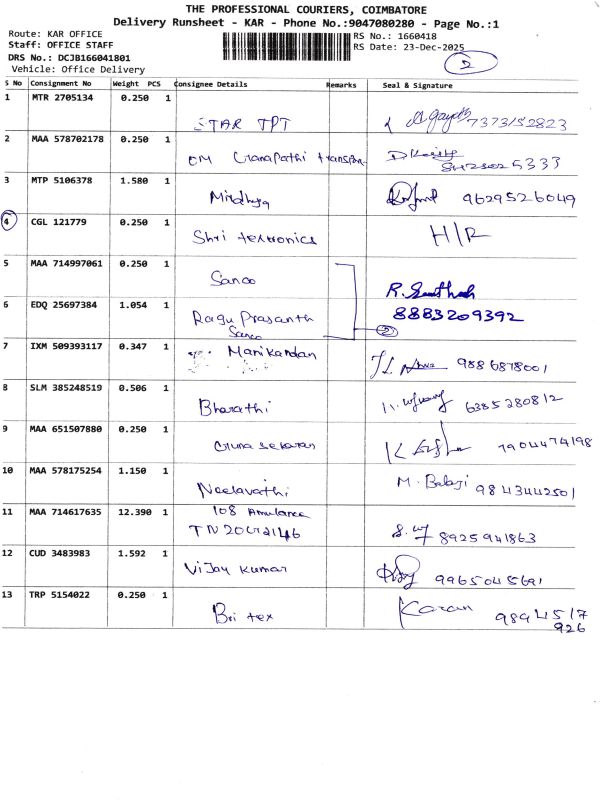 THE PROFESSIONAL COURIERS, COIMBATORE
Delivery Runsheet - KAR - Phone No.:9047080280 - Page No.:1
Route: KAR OFFICE
Staff: OFFICE STAFF
DRS No.: DCJB166041801
Vehicle: Office Delivery
RS No.: 1660418
RS Date: 23-Dec-2025
2
S No Consignment No Weight PCS Consignee Details Remarks Seal & Signature
1 MTR 2705134 0.250 1 STAR TPT 7373152823
2 MAA 578702178 0.250 1 OM Ganapathi
3 MTP 5106378 1.580 1 9629526049
4 CGL 121779 0.250 1 Shri textronics H/R
5 MAA 714997061 0.250 1 Sanoo R.
6 EDQ 25697384 1.054 1 Ragu Prasanth 8883209392
Sanoo 2
7 IXM 509393117 0.347 1 Manikandan 9886878001
8 SLM 385248519 0.506 1 Bharathi 6385280812
9 MAA 651507880 0.250 1 Guna sekaran 7904474198
10 MAA 578175254 1.150 1 Neelavathi M. Balaji 9843442501
11 MAA 714617635 12.390 1 108 Amulance
8925941863
12 CUD 3483983 1.592 1 Vijay kumar 9965045691
13 TRP 5154022 0.250 1 Bri tex Karan 9894517
926